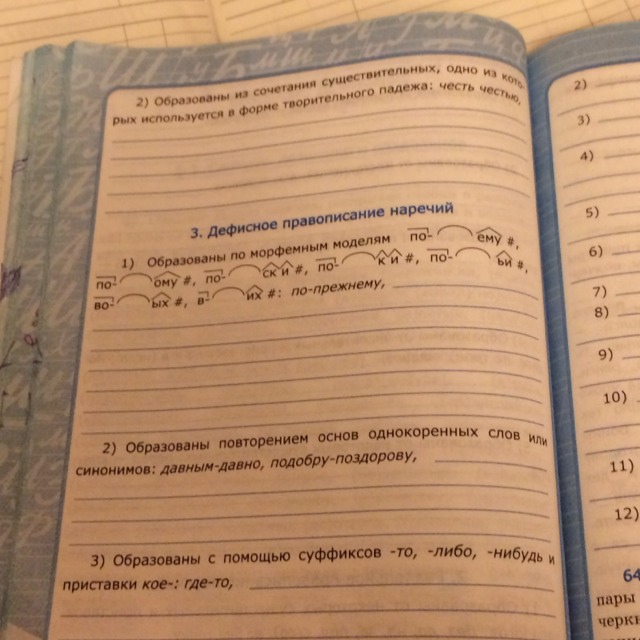 2) Образованы из сочетания существительных, одно из кото-
рых используется в форме творительного падежа: честь честью,
3. Дефисное правописание наречий
1) Образованы по морфемным моделям по- ему #,
по- ому #, по- ск и #, по- к и #, по- ьи #,
во- ых #, в- их #: по-прежнему,
2) Образованы повторением основ однокоренных слов или
синонимов: давным-давно, подобру-поздорову,
3) Образованы с помощью суффиксов -то, -либо, -нибудь и
приставки кое-: где-то,
2)
3)
4)
5)
6)
7)
8)
9)
10)
11)
12)
64
пары
черкы